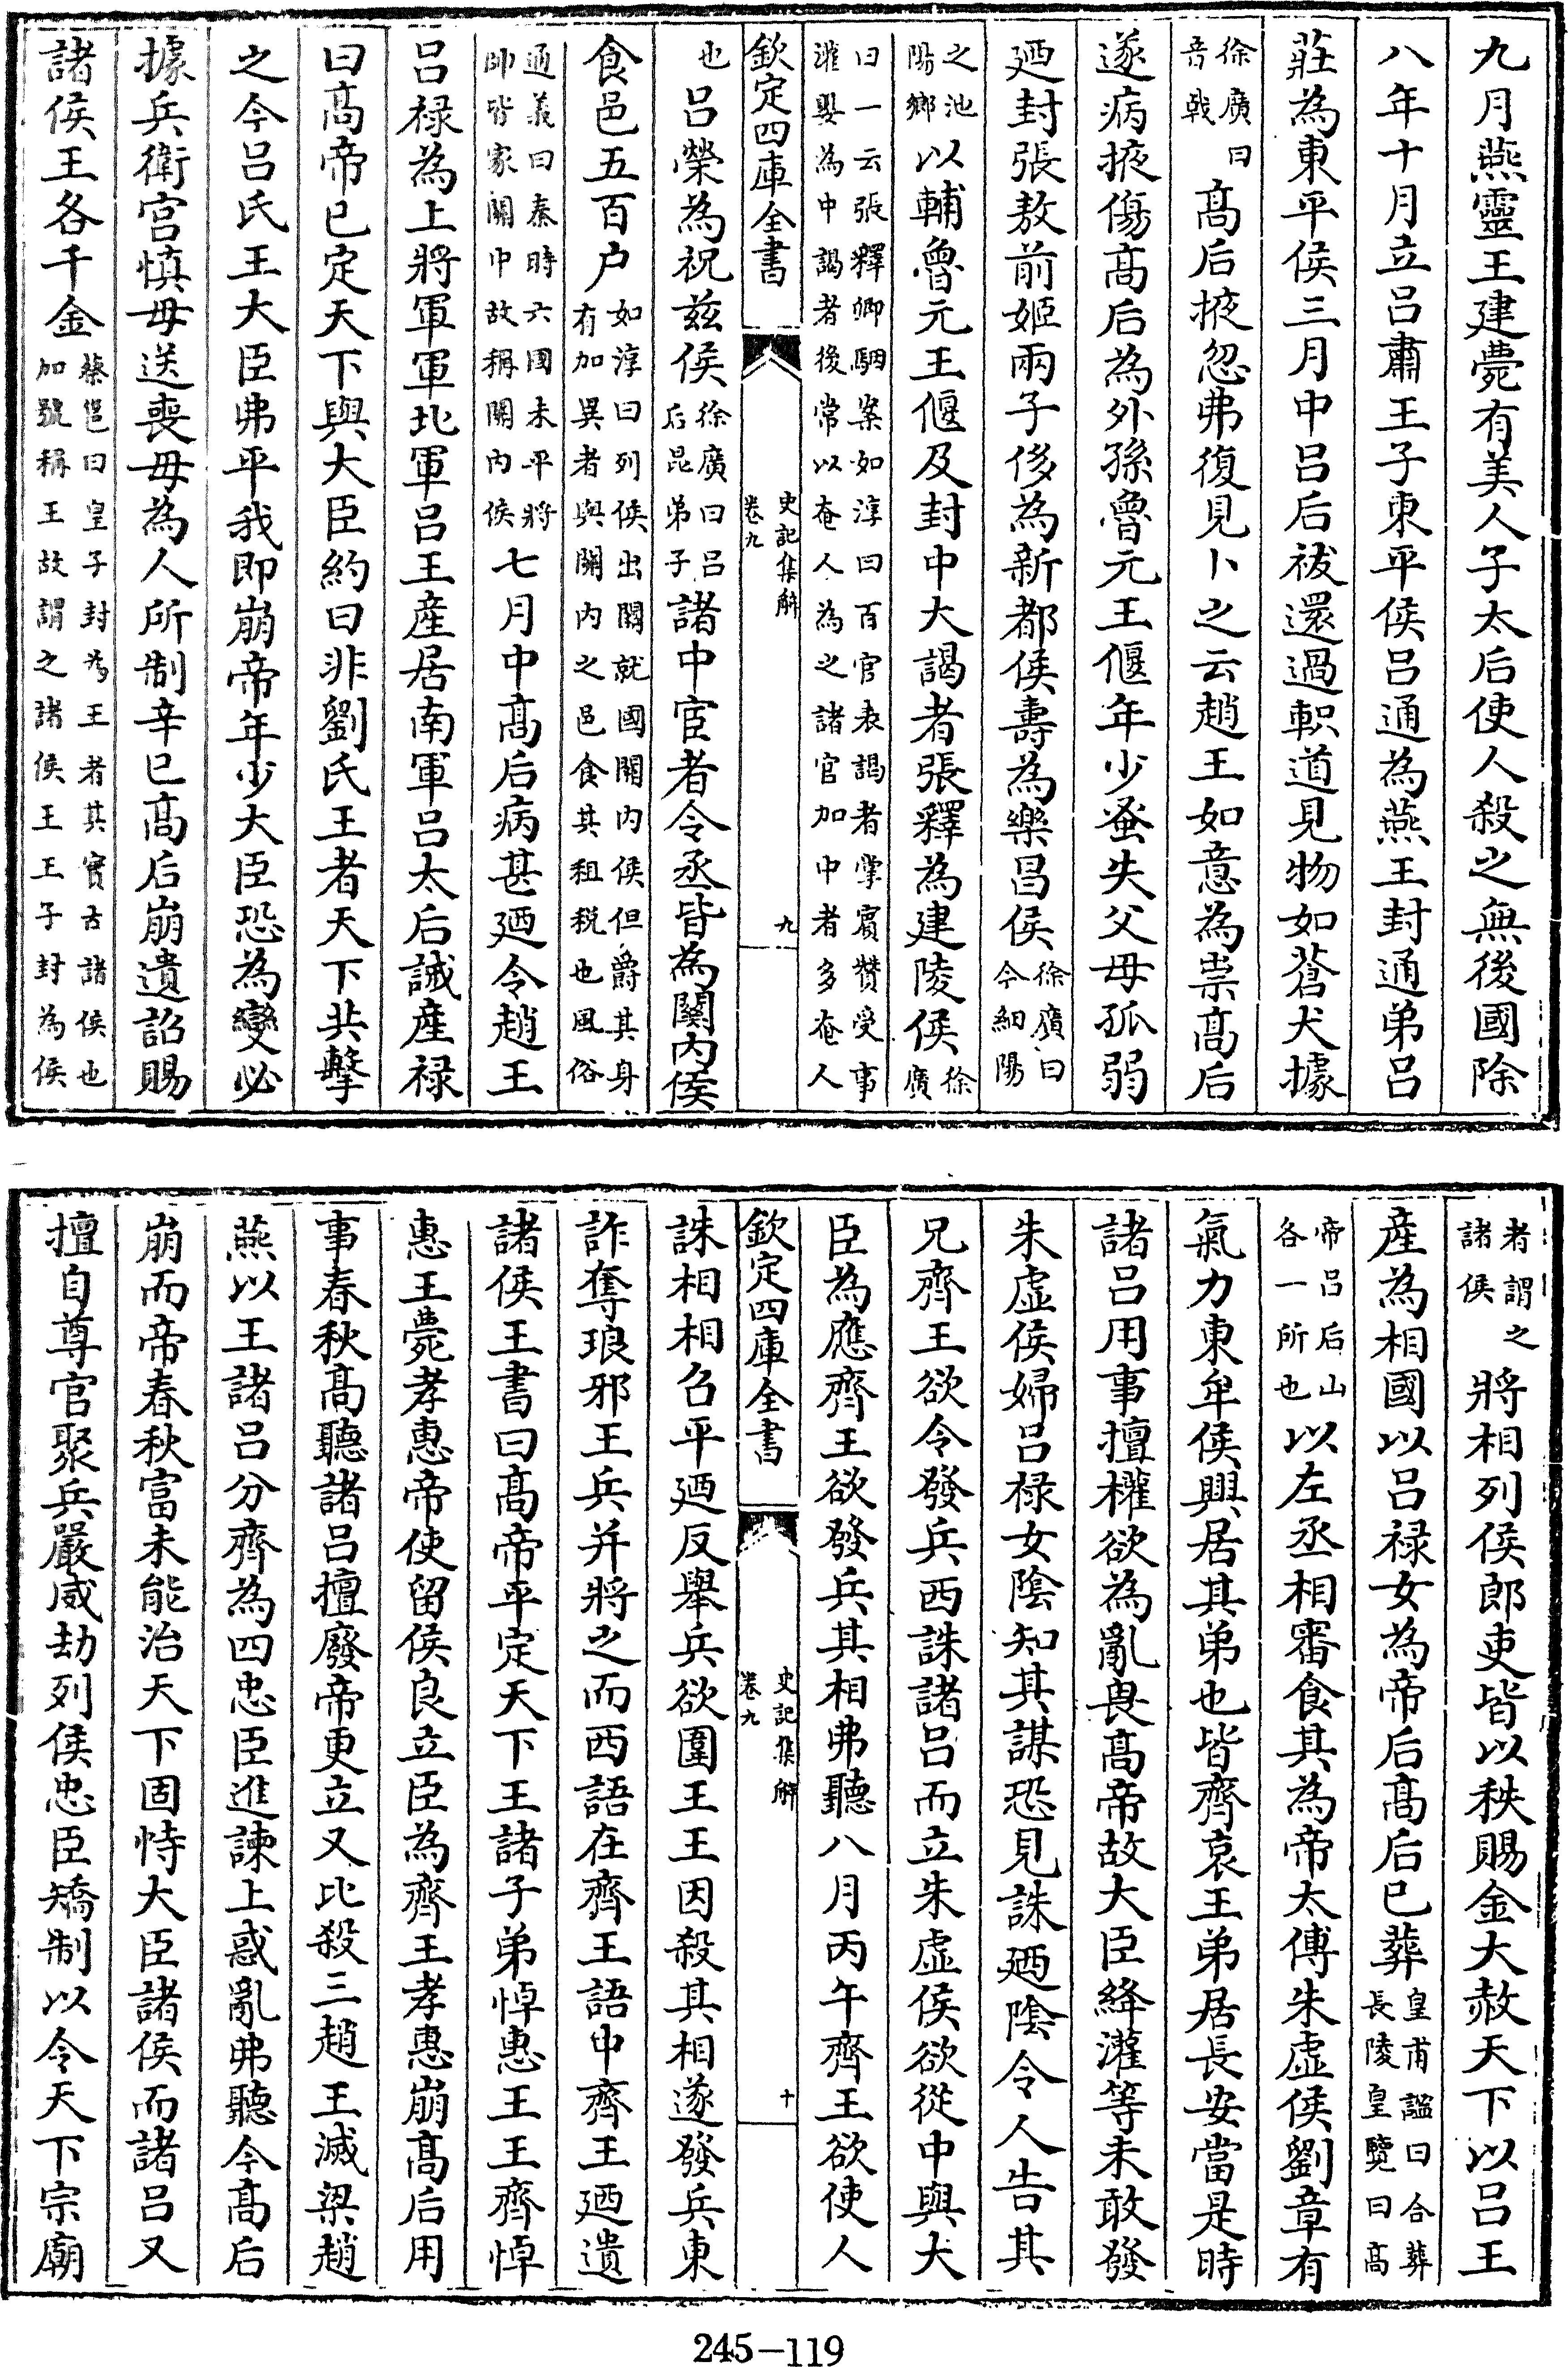 九月燕靈王建薨有美人子太后使人殺之無後國除
八年十月立吕肅王子東平侯吕通為燕王封通弟吕
莊為東平侯三月中吕后祓還過軹道見物如蒼犬據
徐廣曰音戟髙后掖忽弗復見卜之云趙王如意為祟髙后
遂病掖傷髙后為外孫魯元王偃年少蚤失父母孤弱
廼封張敖前姬兩子侈為新都侯夀為樂昌侯徐廣曰今細陽
之池陽鄉以輔魯元王偃及封中大謁者張釋為建陵侯徐廣
曰一云張釋卿駰案如淳曰百官表謁者掌賓贊受事灌嬰為中謁者後常以奄人為之諸官加中者多奄人
欽定四庫全書 史記集解 卷九 九
也吕榮為祝兹侯徐廣曰吕后昆弟子諸中宦者令丞皆為關内侯
食邑五百户如淳曰列侯出關就國關内侯但爵其身有加異者與關内之邑食其租税也風俗
通義曰秦時六國未平將帥皆家關中故稱關内侯七月中髙后病甚廼令趙王
吕禄為上將軍軍北軍吕王産居南軍吕太后誡産禄
曰髙帝已定天下與大臣約曰非劉氏王者天下共擊
之今吕氏王大臣弗平我即崩帝年少大臣恐為變必
據兵衛宫慎毋送喪毋為人所制辛巳髙后崩遺詔賜
諸侯王各千金蔡邕曰皇子封為王者其實古諸侯也加號稱王故謂之諸侯王王子封為侯
者謂之諸侯將相列侯郎吏皆以秩賜金大赦天下以吕王
産為相國以吕禄女為帝后髙后已葬皇甫謐曰合葬長陵皇覽曰髙
帝吕后山各一所也以左丞相審食其為帝太傅朱虚侯劉章有
氣力東牟侯興居其弟也皆齊哀王弟居長安當是時
諸吕用事擅權欲為亂畏髙帝故大臣絳灌等未敢發
朱虚侯婦吕禄女陰知其謀恐見誅廼陰令人告其
兄齊王欲令發兵西誅諸吕而立朱虚侯欲從中與大
臣為應齊王欲發兵其相弗聽八月丙午齊王欲使人
欽定四庫全書 史記集解 卷九 十
誅相相召平廼反舉兵欲圍王王因殺其相遂發兵東
詐奪琅邪王兵并將之而西語在齊王語中齊王廼遺
諸侯王書曰髙帝平定天下王諸子弟悼惠王王齊悼
惠王薨孝惠帝使留侯良立臣為齊王孝惠崩髙后用
事春秋髙聽諸吕擅廢帝更立又比殺三趙王滅梁趙
燕以王諸吕分齊為四忠臣進諫上惑亂弗聽今髙后
崩而帝春秋富未能治天下固恃大臣諸侯而諸吕又
擅自尊官聚兵嚴威劫列侯忠臣矯制以令天下宗廟
245-119